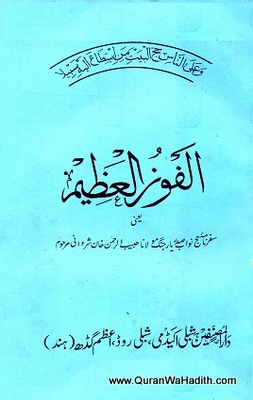 وعلی الناس حج البیت من استطاع الیہ سبیلا
الفوز العظیم
یعنی
سفرنامہ حج نواب صدر یار جنگ مولانا حبیب الرحمن خان شروانی مرحوم
دارالمصنفین شبلی اکیڈمی، شبلی روڈ، اعظم گڈھ (ہند)
www.QuranWaHadith.com